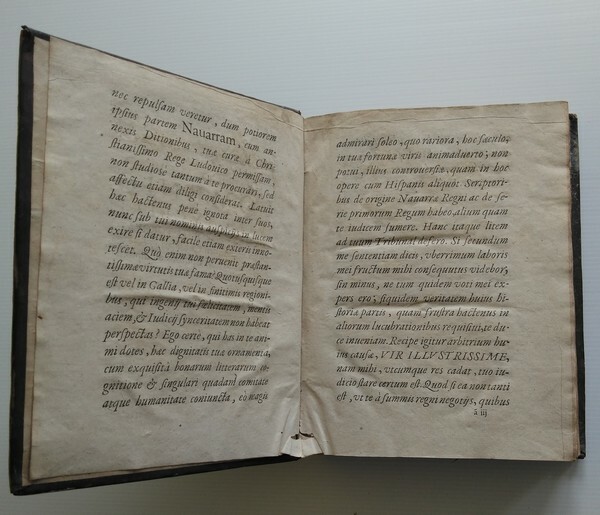 nec repulsam veretur, dum potiorem
ipsius partem Nauarram, cum an-
nexis Ditionibus, tuæ curæ à Chri-
stianissimo Rege Ludouico permissam,
non studiose tantum à te procurari, sed
affectu etiam diligi considerat. Latuit
hæc hactenus penè ignota inter suos,
nunc sub tui nominis auspicijs in lucem
exire si datur, facile etiam exteris inno-
tescet. Quò enim non peruenit præstan-
tissimæ virtutis tuæ fama? Quotusquisque
est vel in Gallia, vel in finitimis regioni-
bus, qui ingenij tui felicitatem, mentis
aciem, & Iudicij synceritatem non habeat
perspectas? Ego certè, qui has in te ani-
mi dotes, hæc dignitatis tuæ ornamenta,
cum exquisita bonarum litterarum co-
gnitione & singulari quadam comitate
atque humanitate coniuncta, eò magis
admirari soleo, quo rariora, hoc sæculo,
in tua fortunæ viris animaduerto; non
potui, illius controuersiæ, quam in hoc
opere cum Hispanis aliquot Scriptori-
bus de origine Nauarræ Regni ac de se-
rie primorum Regum habeo, alium quam
te iudicem sumere. Hanc itaque litem
ad tuum Tribunal defero. Si secundum
me sententiam dicis, vberrimum laboris
mei fructum mihi consequutus videbor;
sin minus, ne tum quidem voti mei ex-
pers ero; siquidem veritatem huius hi-
storiæ partis, quam frustra hactenus in
aliorum lucubrationibus requisiui, te du-
ce inueniam. Recipe igitur arbitrium hu-
ius causæ, VIR ILLVSTRISSIME,
nam mihi, vtcumque res cadat, tuo iu-
dicio stare certum est. Quod si ea non tanti
est, vt te à summis regni negotijs, quibus
ã iij